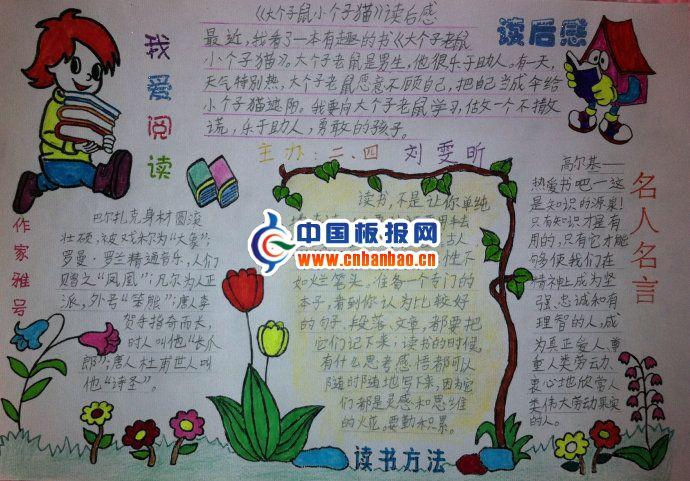 《大个子鼠小个子猫》读后感
最近,我看了一本有趣的书《大个子老鼠
小个子猫》。大个子老鼠是男生,他很乐于助人。有一天,
天气特别热,大个子老鼠愿意不顾自己,把自己当成伞给
小个子猫遮阳。我要向大个子老鼠学习,做一个不撒
谎,乐于助人,勇敢的孩子。
主办:二、四 刘雯昕
我爱阅读
读后感
作家雅号
巴尔扎克身材圆滚
壮硕,被戏称为“大象”;
罗曼·罗兰精通音乐,人们
赠之“凤凰”;凡尔为人正
派,外号“笨熊”;唐人李
贺手指奇而长,
时人叫他“长爪
郎”;唐人杜甫世人叫
他“诗圣”。
读书,不是让你单纯
古人
性不
如烂笔头。准备一个专门的
本子,看到你认为比较好
的句子、段落、文章,都要把
它们记下来;读书的时候,
有什么思考感悟都可以
随时随地写下来,因为它
们都是灵感和思维
的火花。要勤积累。
读书方法
中国板报网
www.cnbanbao.cn
名人名言
高尔基——
热爱书吧——这
是知识的源泉!
只有知识才是有
用的,只有它才能
够使我们在
精神上成为坚
强、忠诚和有
理智的人,成
为真正爱人、尊
重人类劳动、
衷心地欣赏人
类伟大劳动果实
的人。